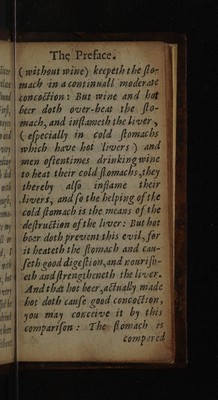 The Preface.
(without wine) keepeth the sto-
mach in a continuall moderate
concoction: But wine and hot
beer doth over-heat the sto-
mach, and inflameth the liver,
(especially in cold stomachs
which have hot livers) and
men oftentimes drinking wine
to heat their cold stomachs, they
thereby also inflame their
livers, and so the helping of the
cold stomach is the means of the
destruction of the liver: But hot
beer doth prevent this evil, for
it heateth the stomach and cau-
seth good digestion, and nourish-
eth and strengtheneth the liver.
And that hot beer, actually made
hot doth cause good concoction,
you may conceive it by this
comparison: The stomach is
compared